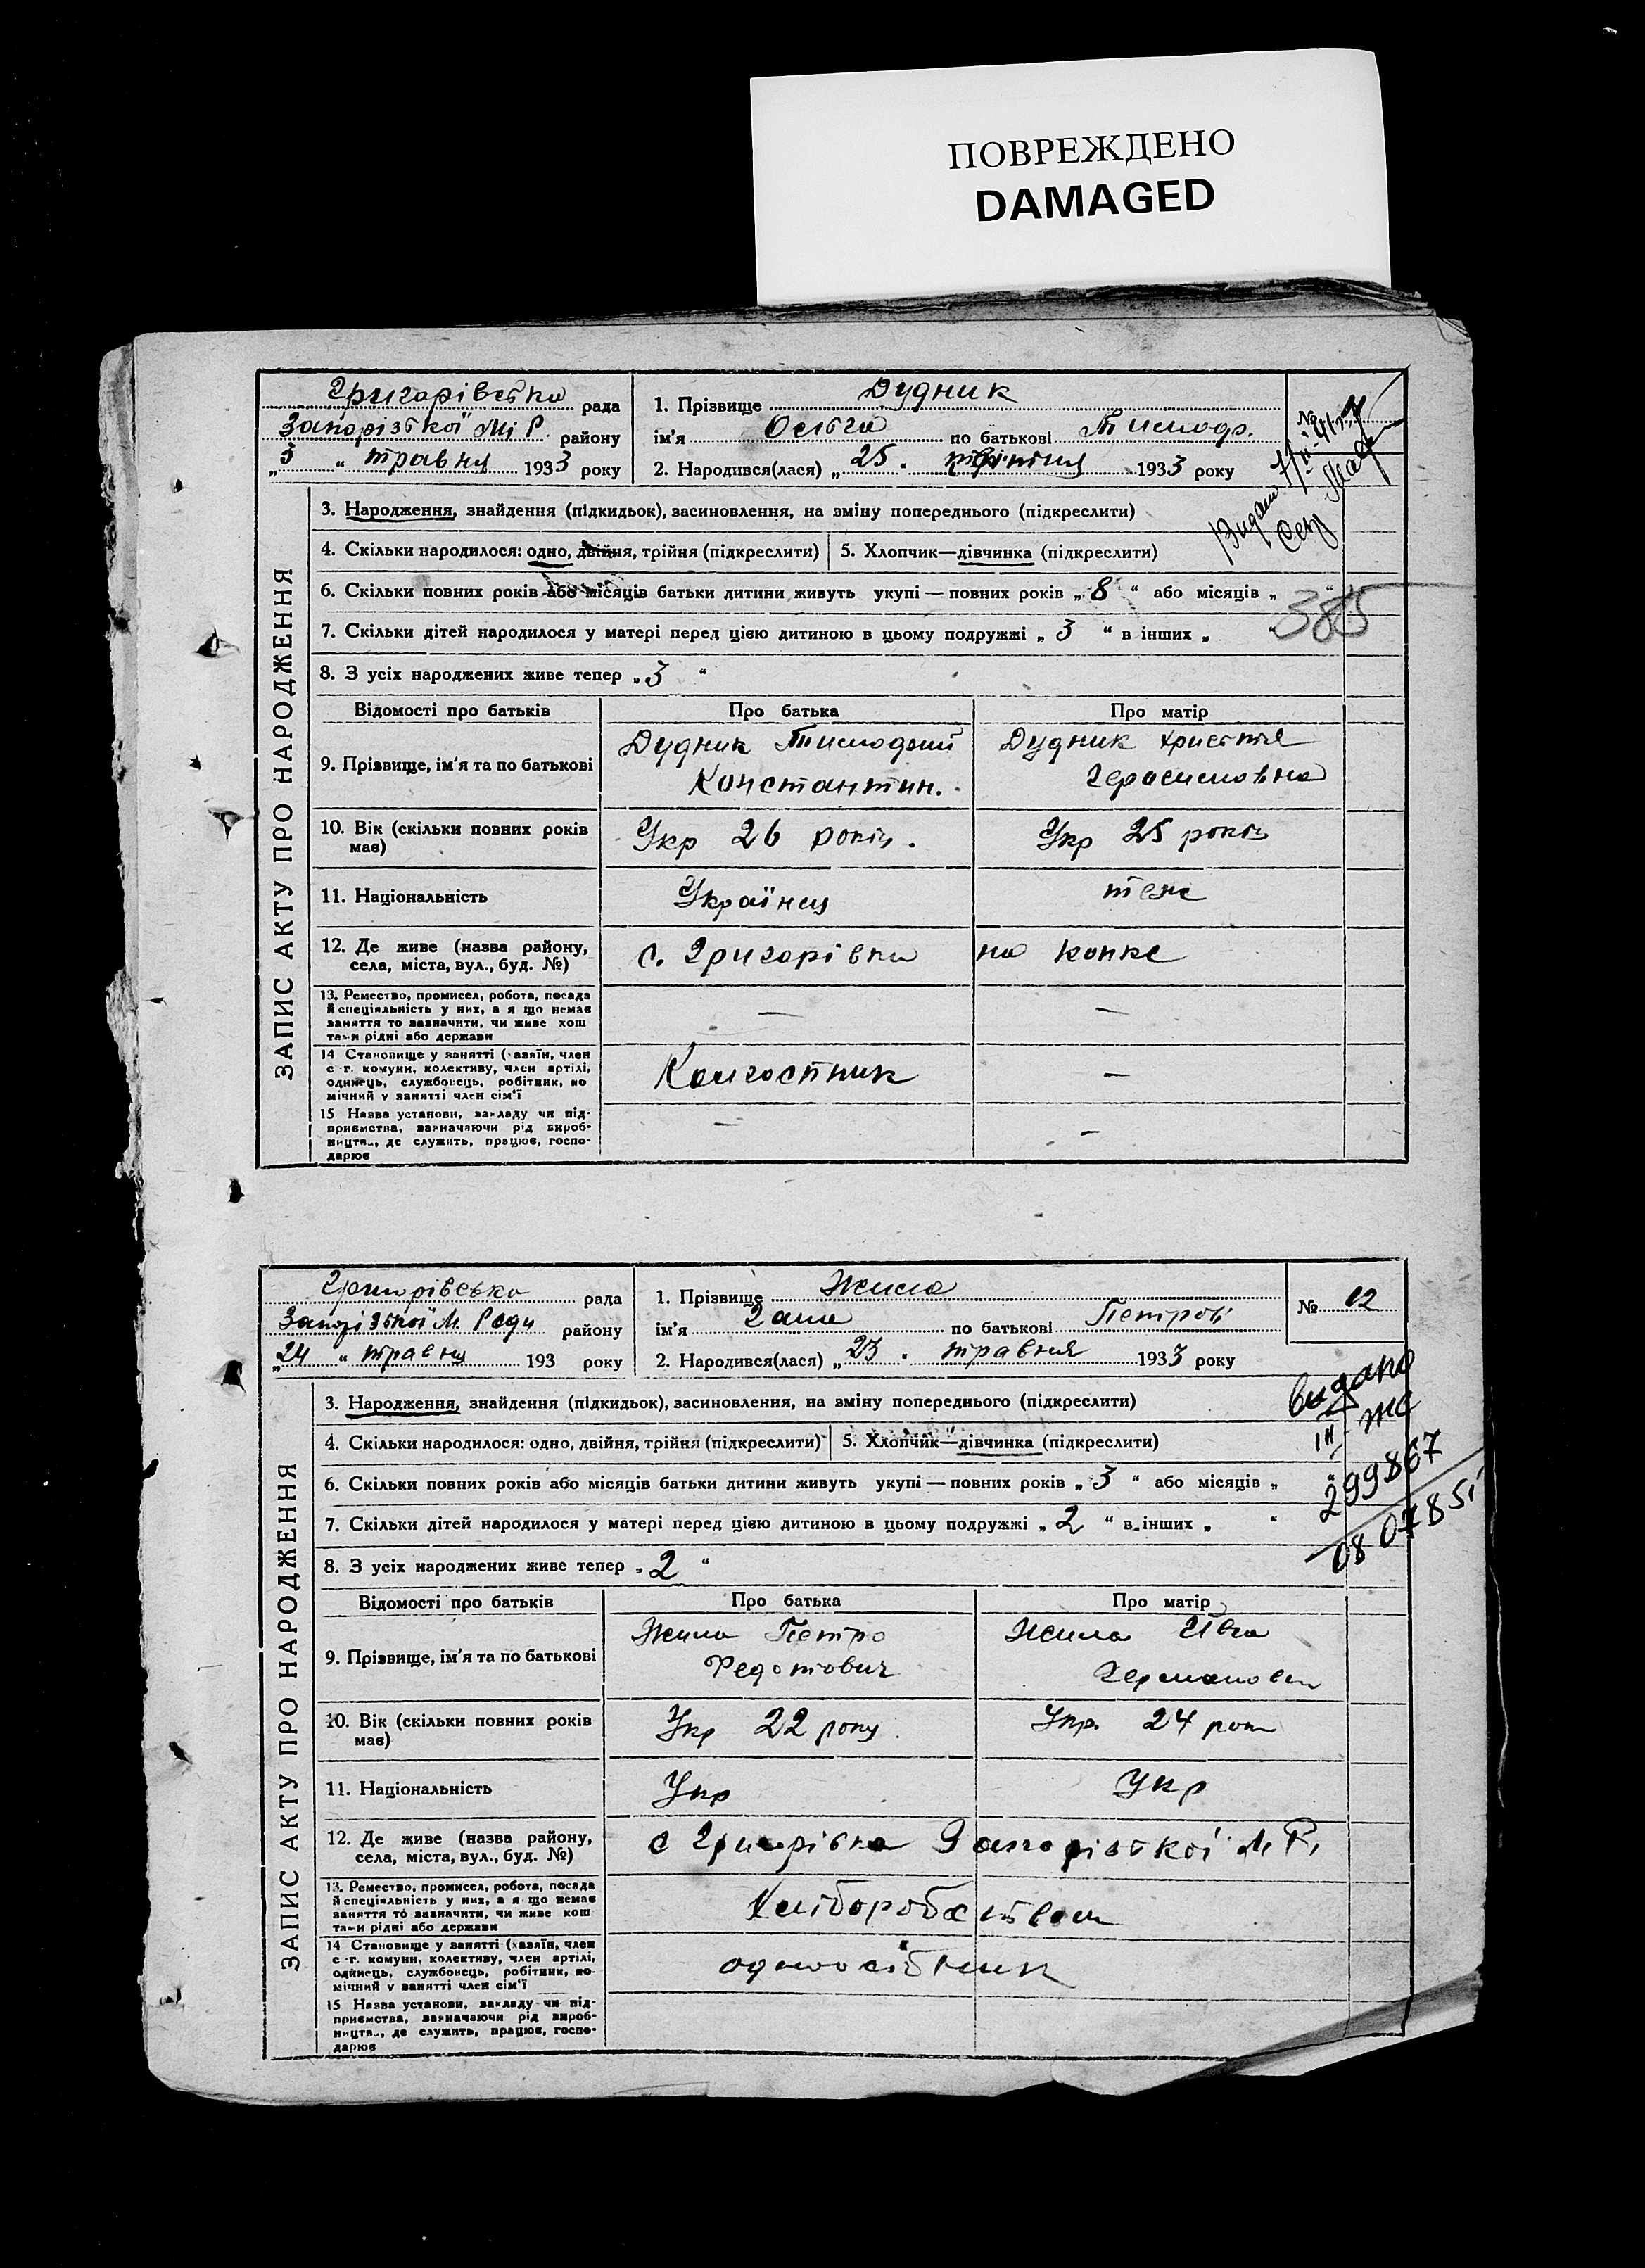 ПОВРЕЖДЕНО
DAMAGED
ЗАПИС АКТУ ПРО НАРОДЖЕННЯ
Григорівська рада
Запорізької Мі Р. району
„3“ травня 1933 року
1. Прізвище Дудник
ім'я Ольга по батькові Тимофр.
2. Народився(лася) „25. 1933 року
№
Видано
385
3. Народження, знайдення (підкидьок), засиновлення, на зміну попереднього (підкреслити)
4. Скільки народилося: одно, двійня, трійня (підкреслити)
5. Хлопчик—дівчинка (підкреслити)
6. Скільки повних років або місяців батьки дитини живуть укупі — повних років „8“ або місяців „ “
7. Скільки дітей народилося у матері перед цією дитиною в цьому подружжі „3“ в інших „ “
8. З усіх народжених живе тепер „3“
Відомості про батьків Про батька Про матір
9. Прізвище, ім'я та по батькові
Дудник Тимофій
Константин.
Дудник Христя
Герасимовна
10. Вік (скільки повних років
має)
Укр 26 років.
Укр 25 років
11. Національність
Українец
теж
12. Де живе (назва району,
села, міста, вул., буд. №)
с. Григорівка на
13. Ремество, промисел, робота, посада
й спеціяльність у них, а я що немає
заняття то зазначити, чи живе кош
тами рідні або держави
—
—
14 Становище у занятті (хазяїн, член
с-г. комуни, колективу, член артілі,
одинець, службовець, робітник, по
мічний у занятті член сім'ї
Колгостник
—
15 Назва установи, закладу чи під-
приємства, зазначаючи рід вироб-
ництва, де служить, працює, госпо-
дарює
—
—
ЗАПИС АКТУ ПРО НАРОДЖЕННЯ
Григорівсько рада
Запорізької М. Ради району
„24“ травня 193 року
1. Прізвище Жила
ім'я Галя по батькові Петров
2. Народився(лася) „23. травня 1933 року
№ 12
видано
299867
08 07851
3. Народження, знайдення (підкидьок), засиновлення, на зміну попереднього (підкреслити)
4. Скільки народилося: одно, двійня, трійня (підкреслити)
5. Хлопчик—дівчинка (підкреслити)
6. Скільки повних років або місяців батьки дитини живуть укупі — повних років „3“ або місяців „ “
7. Скільки дітей народилося у матері перед цією дитиною в цьому подружжі „2“ в інших „ “
8. З усіх народжених живе тепер „2“
Відомості про батьків Про батька Про матір
9. Прізвище, ім'я та по батькові
Жила Петро
Федотович
Жила Івга
10. Вік (скільки повних років
має)
Укр 22 року
Укр. 24 роки
11. Національність
Укр
Укр
12. Де живе (назва району,
села, міста, вул., буд. №)
с Григорівка Запорізької М. Р.
13. Ремество, промисел, робота, посада
й спеціяльність у них, а я що немає
заняття то зазначити, чи живе кош
тами рідні або держави
Хліборобством
14 Становище у занятті (хазяїн, член
с-г. комуни, колективу, член артілі,
одинець, службовець, робітник, по-
мічний у занятті член сім'ї
одноосібник
15 Назва установи, закладу чи під-
приємства, зазначаючи рід вироб-
ництва, де служить, працює, госпо-
дарює